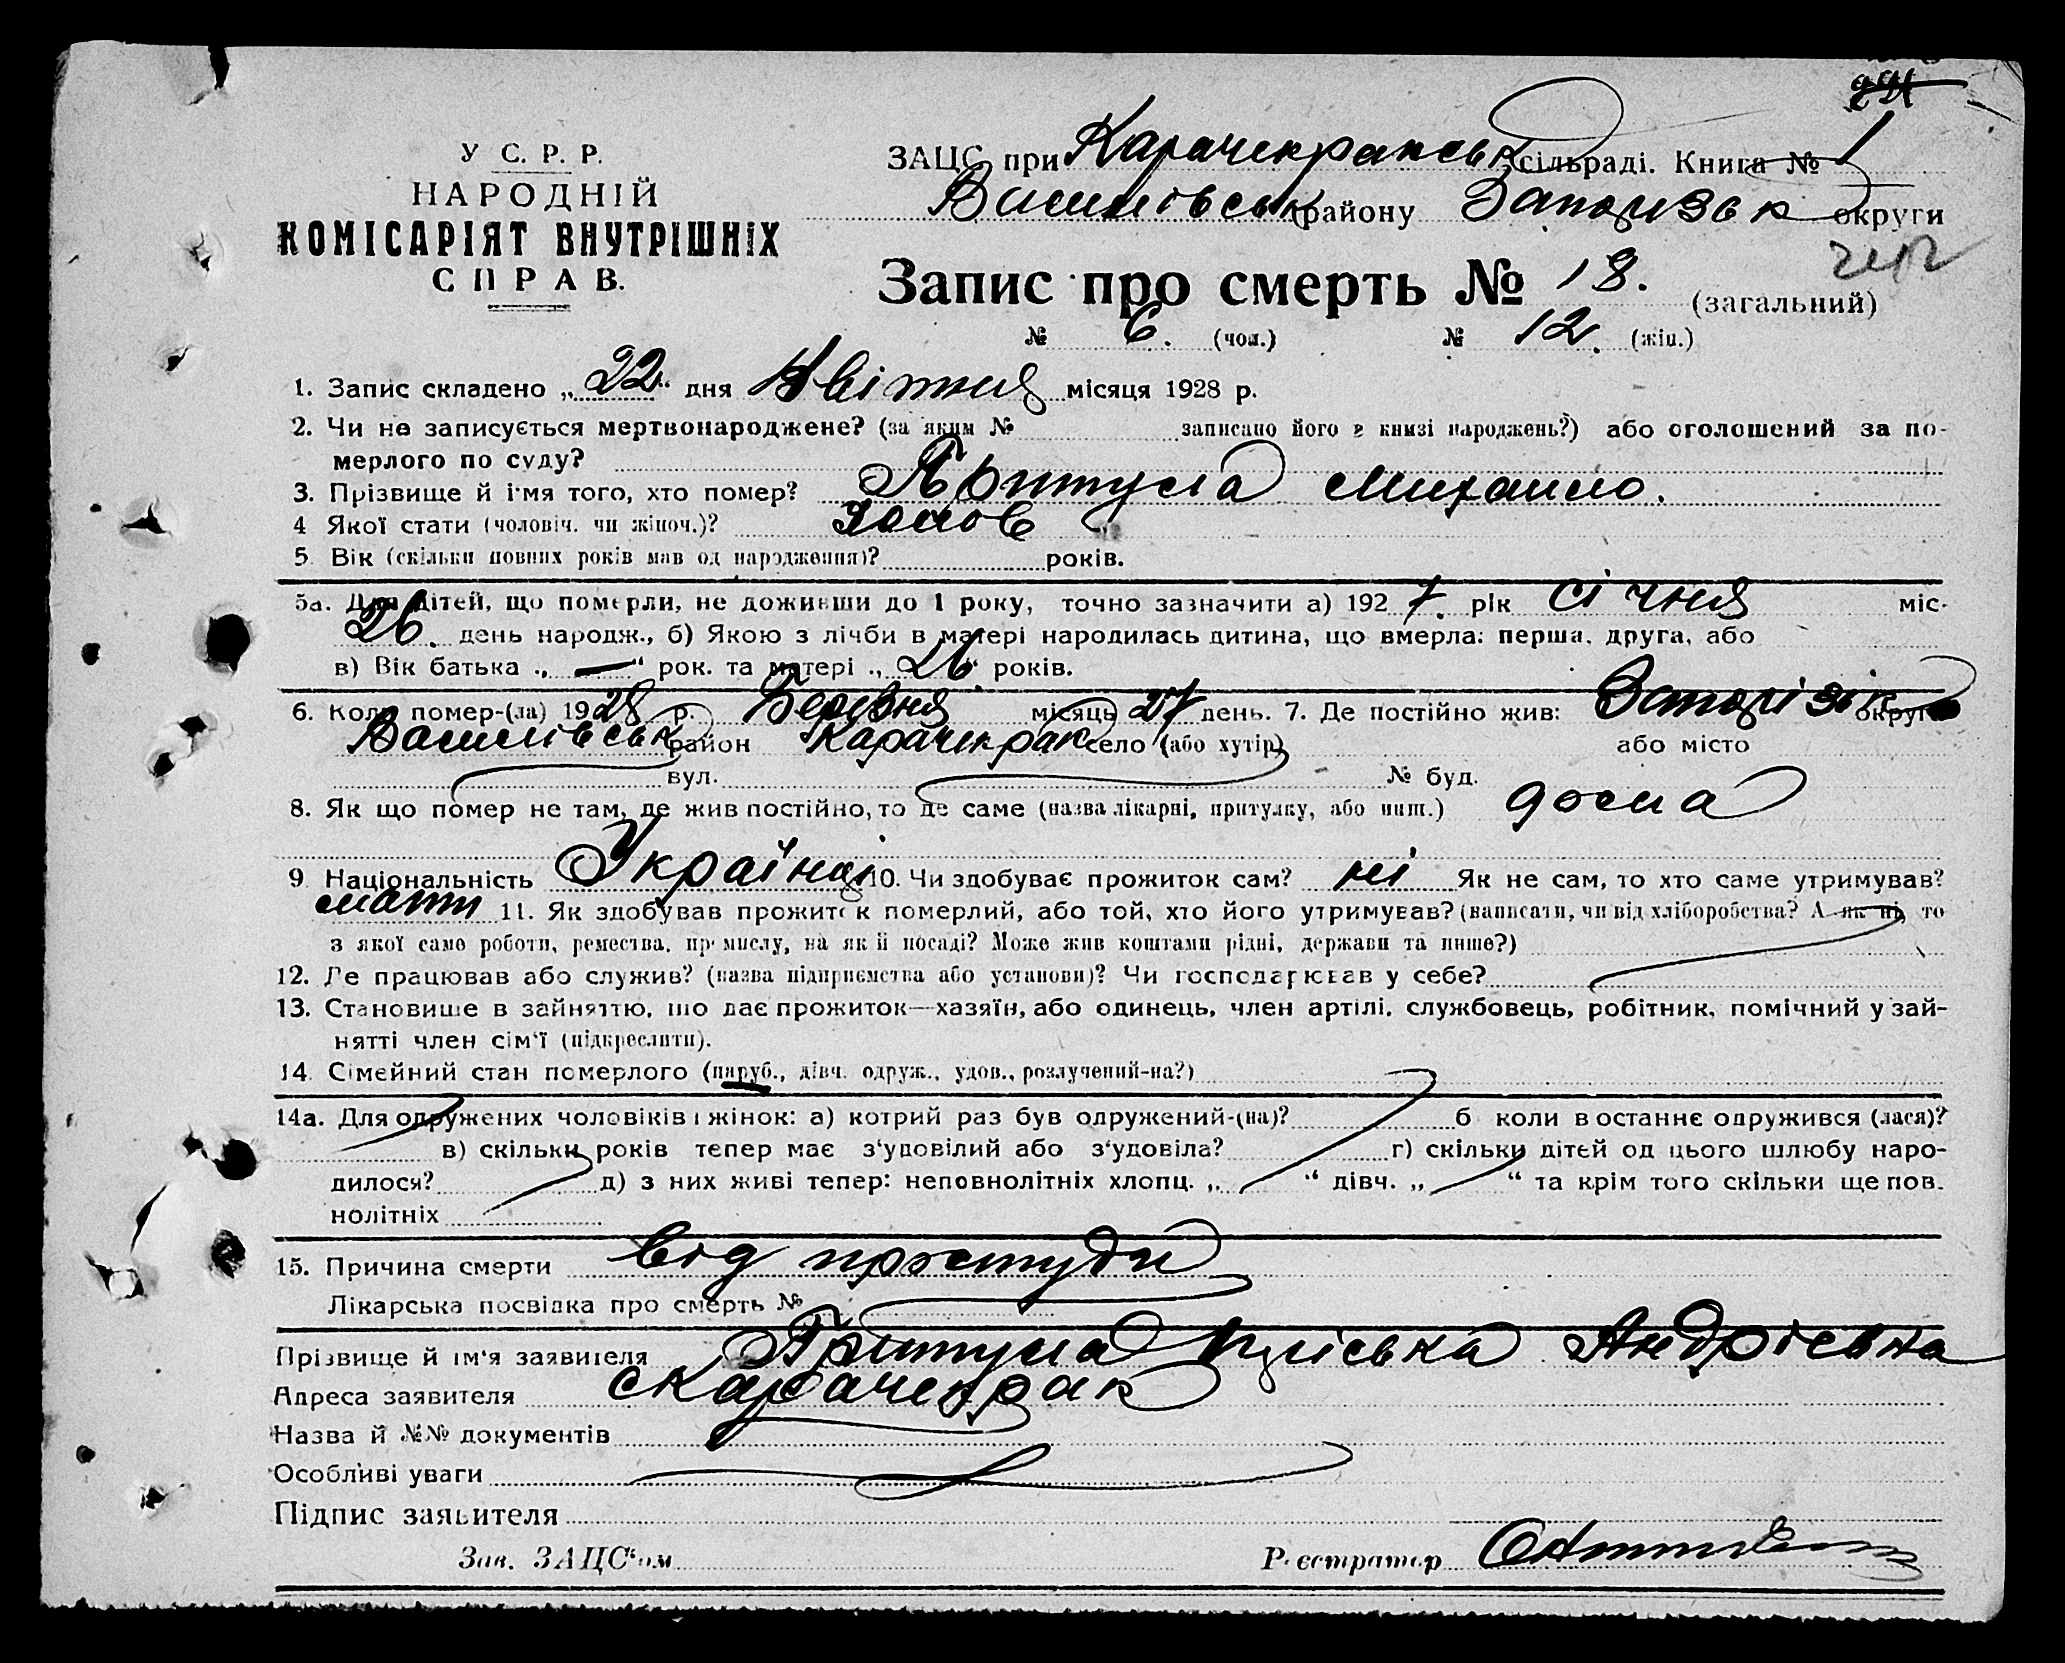 У С. Р. Р.
НАРОДНІЙ
КОМІСАРІЯТ ВНУТРІШНІХ
СПРАВ.
ЗАЦС при Карачекракськ сільраді. Книга № 1
Василівськ району Запорізьк округи
Запис про смерть № 18. (загальний)
№ 6. (чол.) № 12. (жін.)
1. Запис складено „22“ дня Квітня місяця 1928 р.
2. Чи не записується мертвонароджене? (за яким № записано його в книзі народжень?) або оголошений за по-
мерлого по суду?
3. Прізвище й ім'я того, хто помер? Притула Михаило.
4 Якої стати (чоловіч. чи жіноч.)? чолов
5. Вік (скільки повних років мав од народження)? років.
5а. Для дітей, що померли, не доживши до 1 року, точно зазначити а) 1927. рік січня міс.
26. день народж., б) Якою з лічби в матері народилась дитина, що вмерла: перша, друга, або
в) Вік батька „—“ рок. та матері „26“ років.
6. Коли помер-(ла) 1928 р. Березня місяць 27 день. 7. Де постійно жив: Запорізьк округи
Василівськ район Карачекрак село (або хутір) або місто
вул. № буд.
8. Як що помер не там, де жив постійно, то де саме (назва лікарні, притулку, або инш.) дома
9 Національність Українці 10. Чи здобуває прожиток сам? ні Як не сам, то хто саме утримував?
мати 11. Як здобував прожиток померлий, або той, хто його утримував? (написати, чи від хліборобства? А як ні, то
з якої само роботи, ремества, промислу, на якій посаді? Може жив коштами рідні, держави та инше?)
12. Де працював або служив? (назва підприємства або установи)? Чи господарював у себе?
13. Становище в зайняттю, що дає прожиток—хазяїн, або одинець, член артілі, службовець, робітник, помічний у зай-
нятті член сім'ї (підкреслити).
14. Сімейний стан померлого (паруб., дівч. одруж., удов., розлучений-на?)
14а. Для одружених чоловіків і жінок: а) котрий раз був одружений-(на)? б коли востаннє одружився (лася)?
в) скільки років тепер має з'удовілий або з'удовіла? г) скільки дітей од цього шлюбу наро-
дилося? д) з них живі тепер: неповнолітніх хлопц. „ “ дівч. „ “ та крім того скільки ще пов.
нолітніх
15. Причина смерти від простуди
Лікарська посвідка про смерть №
Прізвище й ім'я заявителя Притула Андрієвна
Адреса заявителя с Карачекрак
Назва й №№ документів
Особливі уваги
Підпис заявителя
Зав. ЗАЦС'ом Реєстратор